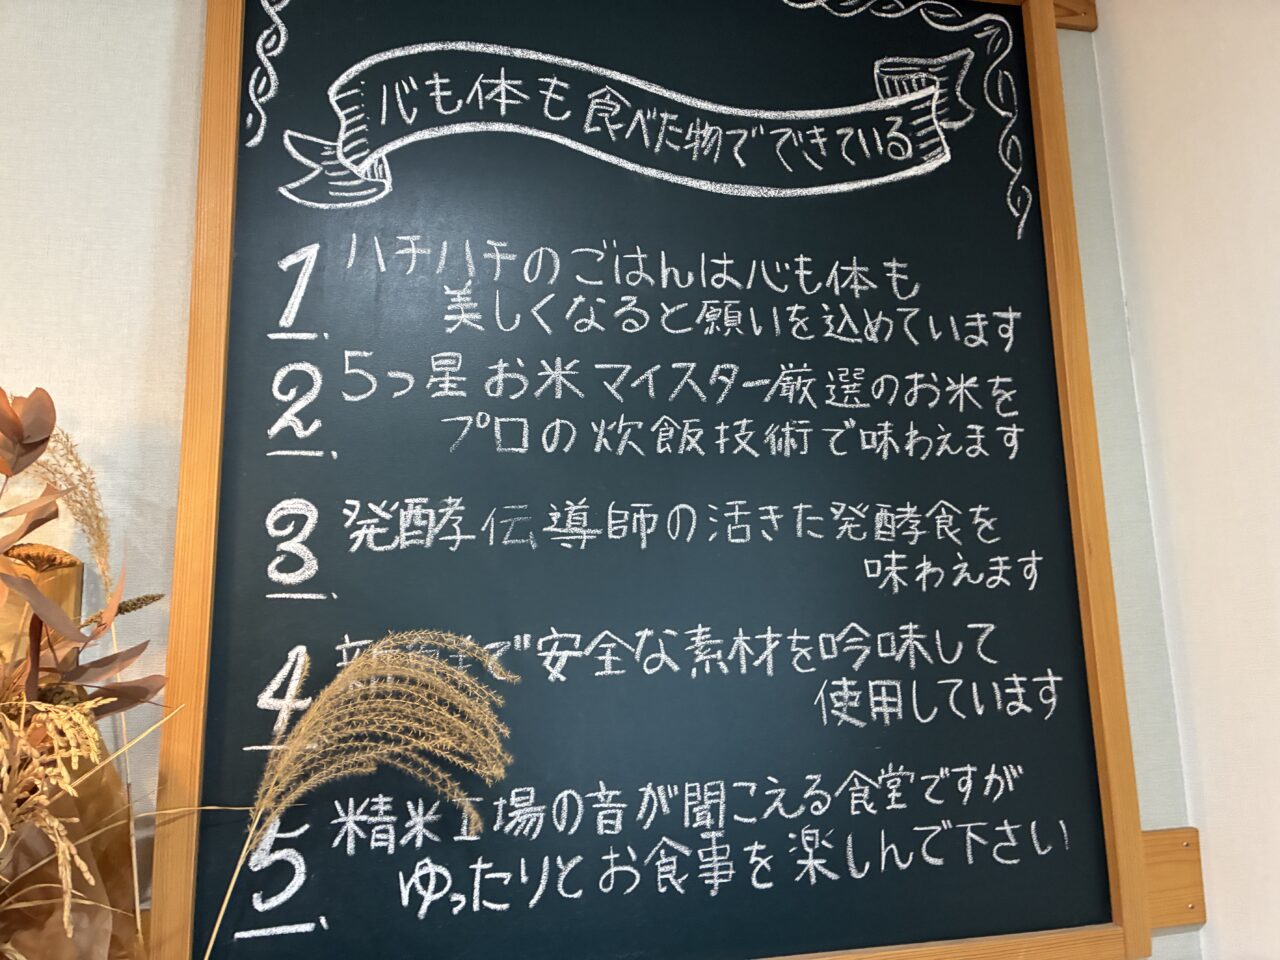 心も体も食べた物でできている
1. ハチハチのごはんは心も体も
美しくなると願いを込めています
2. 5つ星お米マイスター厳選のお米を
プロの炊飯技術で味わえます
3. 発酵伝導師の活きた発酵食を
味わえます
4 で安全な素材を吟味して
使用しています
5. 精米工場の音が聞こえる食堂ですが
ゆったりとお食事を楽しんで下さい